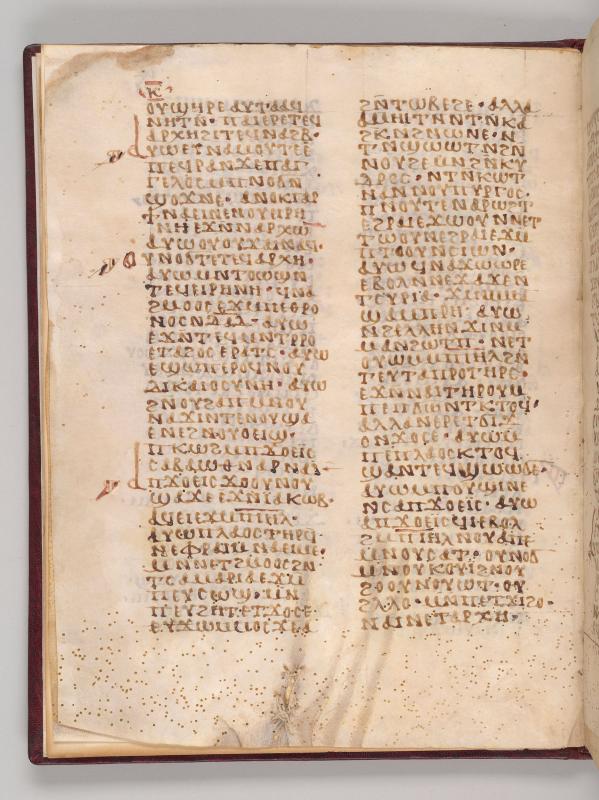 ⲕ̅
ⲟⲩϣⲏⲣⲉ ⲁⲩⲧⲁⲁϥ
ⲛⲏⲧⲛ̅· ⲡⲁⲓⲉⲣⲉⲧⲉϥ
ⲁⲣⲭⲏϩⲓⲧⲉϥⲛⲁϩⲃ·
ⲁⲩⲱⲉⲩⲛⲁⲙⲟⲩⲧⲉⲉ
ⲡⲉϥⲣⲁⲛϫⲉⲡⲁⲅ
ⲅⲉⲗⲟⲥⲙⲡⲛⲟϭⲛ
ϣⲟϫⲛⲉ· ⲁⲛⲟⲕⲅⲁⲣ
ϯⲛⲁⲉⲓⲛⲉⲛⲟⲩⲉⲓⲣⲏ
ⲛⲏⲉϫⲛⲛⲁⲣⲭⲱ
ⲁⲩⲱⲟⲩⲟⲩϫⲁⲓⲛⲁϥ·
ⲟⲩⲛⲟϭⲧⲉⲧⲉϥⲁⲣⲭⲏ·
ⲁⲩⲱⲙⲛⲧⲟϣⲛ
ⲧⲉϥⲉⲓⲣⲏⲛⲏ· ϥⲛⲁ
ϩⲙⲟⲟⲥⲉϫⲙⲡⲉⲑⲣⲟ
ⲛⲟⲥⲛⲇ̅ⲁ̅ⲇ̅· ⲁⲩⲱ
ⲉϫⲛⲧⲉϥⲙⲛⲧⲣⲣⲟ
ⲉⲧⲁϩⲟⲥⲉⲣⲁⲧⲥ· ⲁⲩⲱ
ⲉϣⲱⲡⲉⲣⲟϥϩⲛⲟⲩ
ⲇⲓⲕⲁⲓⲟⲥⲩⲛⲏ· ⲁⲩⲱ
ϩⲛⲟⲩϩⲁⲡϫⲓⲛⲧⲉⲛⲟⲩ
ϣⲁⲉⲛⲉϩⲛⲟⲩⲟⲉⲓϣ·
ⲡⲕⲱϩⲙⲡϫⲟⲉⲓⲥ
ⲥⲁⲃⲁⲱⲑⲛⲁⲣⲛⲁⲓ·
ⲁⲡϫⲟⲉⲓⲥϫⲟⲟⲩⲛⲟⲩ
ϣⲁϫⲉⲉϫⲛⲓⲁⲕⲱⲃ·
ⲁϥⲉⲓⲉϫⲙⲡⲓ̅ⲏ̅ⲗ̅·
ⲁⲩⲱⲡⲗⲁⲟⲥⲧⲏⲣϥ
ⲛⲉⲫⲣⲁⲓⲙⲛⲁⲉⲓⲙⲉ·
ⲙⲛⲛⲉⲧϩⲙⲟⲟⲥϩⲛ
ⲧⲥⲁⲙⲁⲣⲓⲁⲉϫⲙ
ⲡⲉⲩⲥⲱϣ· ⲙⲛ
ⲡⲉⲩϩⲏⲧⲉⲧϫⲟⲥⲉ·
ⲉⲩϫⲱⲙⲙⲟⲥϫⲉⲁ
ϩⲛⲧⲱⲃⲉϩⲉ· ⲁⲗⲗⲁ
ⲁⲙⲏⲓⲧⲛⲛⲧⲛⲕⲁ
ϩⲕⲛϩⲛⲱⲛⲉ· ⲛ
ⲧⲛϣⲱⲱⲧⲛϩⲛ
ⲛⲟⲩϩⲉⲙⲛϩⲛⲕⲩ
ⲇⲣⲟⲥ· ⲛⲧⲛⲕⲱⲧ
ⲛⲁⲛⲛⲟⲩⲡⲩⲣⲅⲟⲥ·
ⲡⲛⲟⲩⲧⲉⲛⲁⲣⲱϩⲧ
ⲉϩⲣⲁⲓⲉϫⲱⲟⲩⲛⲛⲉⲧ
ⲧⲱⲟⲩⲛⲉϩⲣⲁⲓⲉϫⲙ
ⲡⲧⲟⲟⲩⲛⲥⲓⲱⲛ·
ⲁⲩⲱϥⲛⲁϫⲱⲱⲣⲉ
ⲉⲃⲟⲗⲛⲛⲉϫⲁϫⲉⲛ
ⲧⲥⲩⲣⲓⲁ· ϫⲓⲛⲙⲙⲁ
ⲛϣⲁⲙⲡⲣⲏ· ⲁⲩⲱ
ⲛϩⲉⲗⲗⲏⲛϫⲓⲛⲙ
ⲙⲁⲛϩⲱⲧⲡ· ⲛⲉⲧ
ⲟⲩⲱⲙⲙⲡⲓⲏⲗϩⲛ
ⲧⲉⲩⲧⲁⲡⲣⲟⲧⲏⲣⲥ·
ⲉϫⲛⲛⲁⲓⲧⲏⲣⲟⲩⲙ
ⲡⲉⲡϭⲱⲛⲧⲕⲧⲟϥ·
ⲁⲗⲗⲁⲛⲉⲣⲉⲧϭⲓϫ
ⲟⲛϫⲟⲥⲉ· ⲁⲩⲱⲙ
ⲡⲉⲡⲗⲁⲟⲥⲕⲧⲟϥ
ϣⲁⲛⲧⲉϥϣⲱⲱϭⲉ·
ⲁⲩⲱⲙⲡⲟⲩϣⲓⲛⲉ
ⲛⲥⲁⲡϫⲟⲉⲓⲥ· ⲁⲩⲱ
ⲁⲡϫⲟⲉⲓⲥϥⲓⲉⲃⲟⲗ
ϩⲙⲡⲓⲏⲗⲛⲟⲩⲁⲡⲉ
ⲙⲛⲟⲩⲥⲁⲧ· ⲟⲩⲛⲟϭ
ⲙⲛⲟⲩⲕⲟⲩⲓϩⲛⲟⲩ
ϩⲟⲟⲩⲛⲟⲩⲱⲧ· ⲟⲩ
ϩⲗⲗⲟ· ⲙⲛⲡⲉⲧϫⲓϩⲟ·
ⲛⲁⲓⲛⲉⲧⲁⲣⲭⲏ·